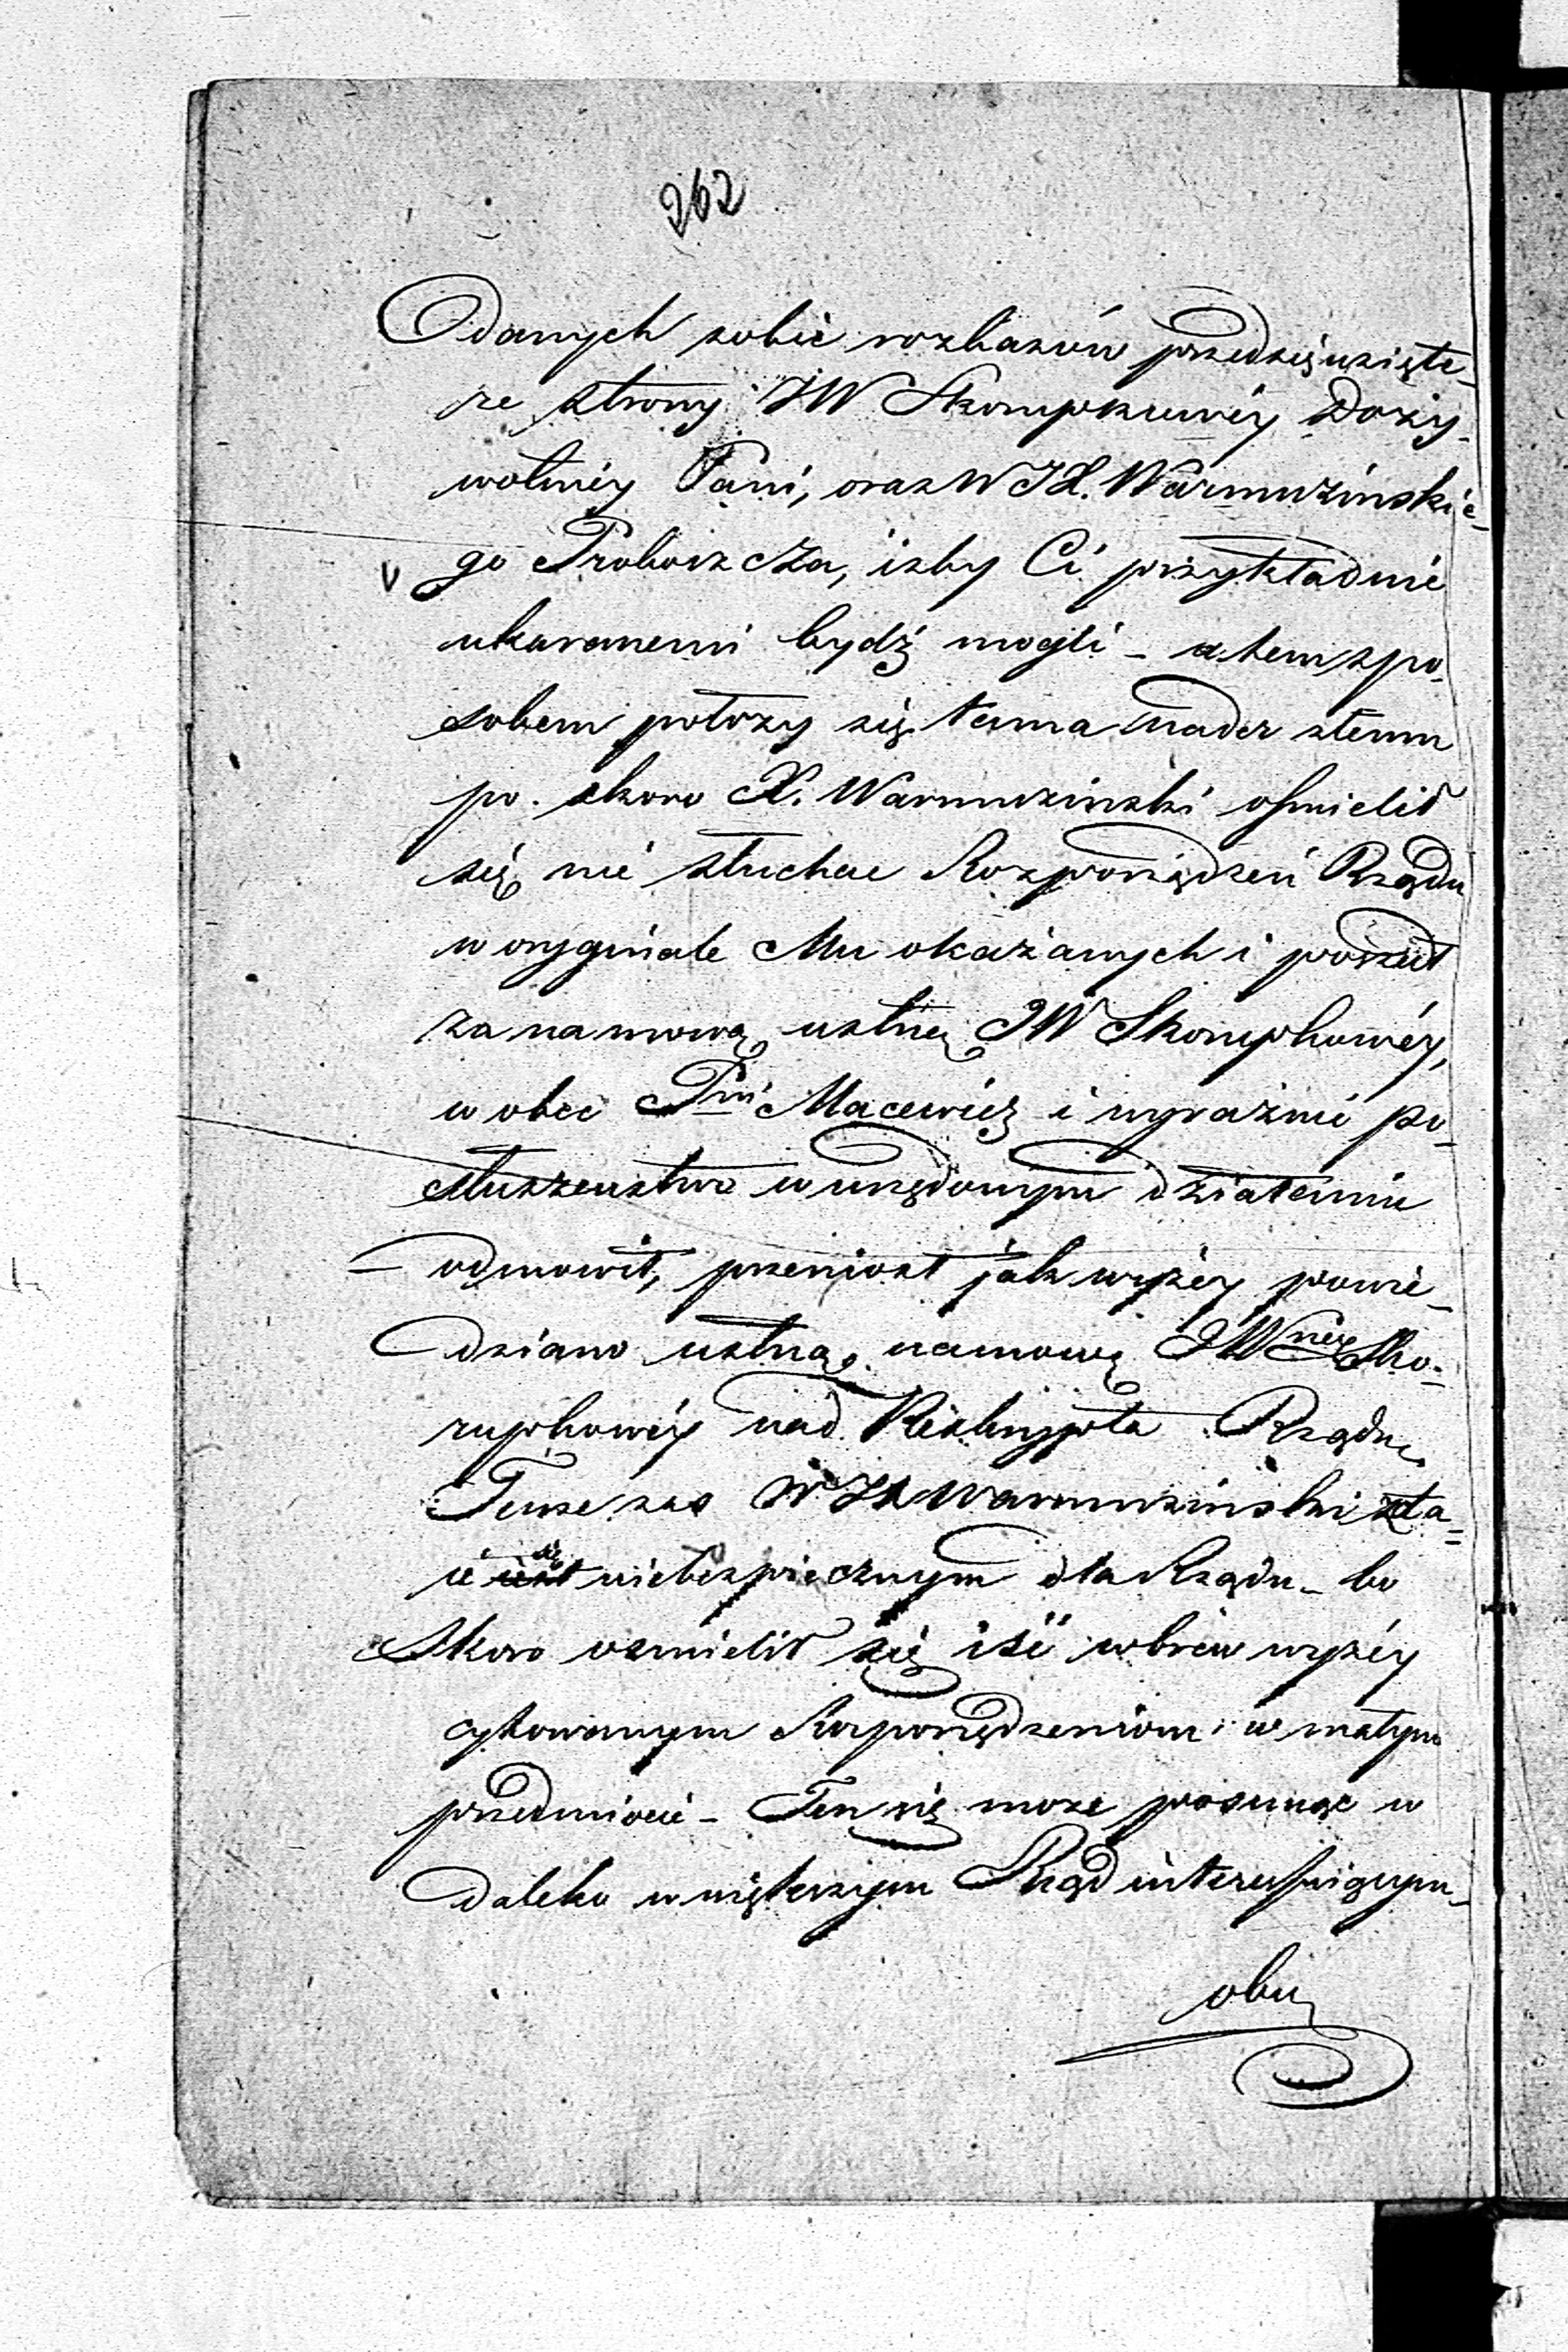 262
danych sobie rozkazów przedsięwzięte
ze strony JW Skorupkowéy Doży-
wotniéy Pani, oraz W JX. Warmuzinskie-
go Proboszcza, iżby Ci przykładnie
ukaranemi bydź mogli – a tem spo-
sobem położy się tama nader złemu
po. skoro X. Warmuzinski ośmielił
się nie słuchac Rozporządzeń Rządu
w oryginale Mu okazanych i poszedł
za namową ustną JW Skorupkowéy,
w obec Pni Macewicz i wyraźnie po-
słuszeństwa w urzędowym działaniu
odmowił, przeniosł jak wyżéy powie-
dziano ustną namowę JWnéy Sko-
rupkowéy nad Reskrypta Rządu
Tenze zas W JX Warmuzinski sta-
ie się niebezpiecznym dla Rządu – bo
Skoro osmielił się iść wbrew wyżéy
cytowanym Rozporządzeniom i w małym
przedmiocie – Ten się może posunąć w
daleko większym Rząd interessuiącym